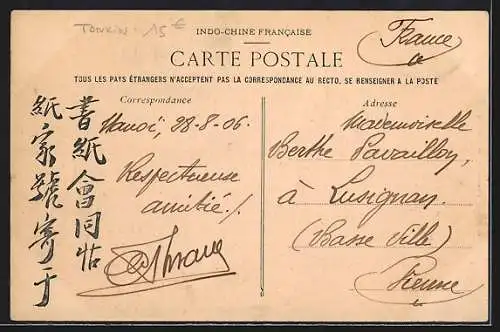 Tonkin 15 €
INDO-CHINE FRANÇAISE
CARTE POSTALE
TOUS LES PAYS ÉTRANGERS N'ACCEPTENT PAS LA CORRESPONDANCE AU RECTO, SE RENSEIGNER A LA POSTE
France
Correspondance
Hanoï, 28-8-06.
Respectueuse
amitié./.
書紙會同帖
紙家號寄于
Adresse
Mademoiselle
Berthe Pavailloy,
à Lusignan.
(Basse Ville)
Vienne